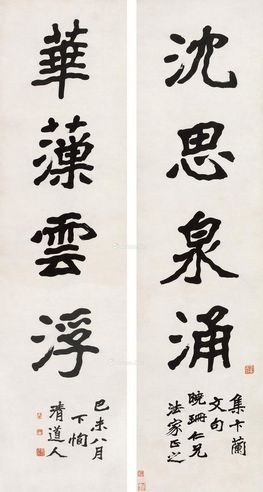 沈思泉涌
集卞蘭
文句
晼珊仁兄
法家正之
華藻雲浮
己未八月
下恂
清道人